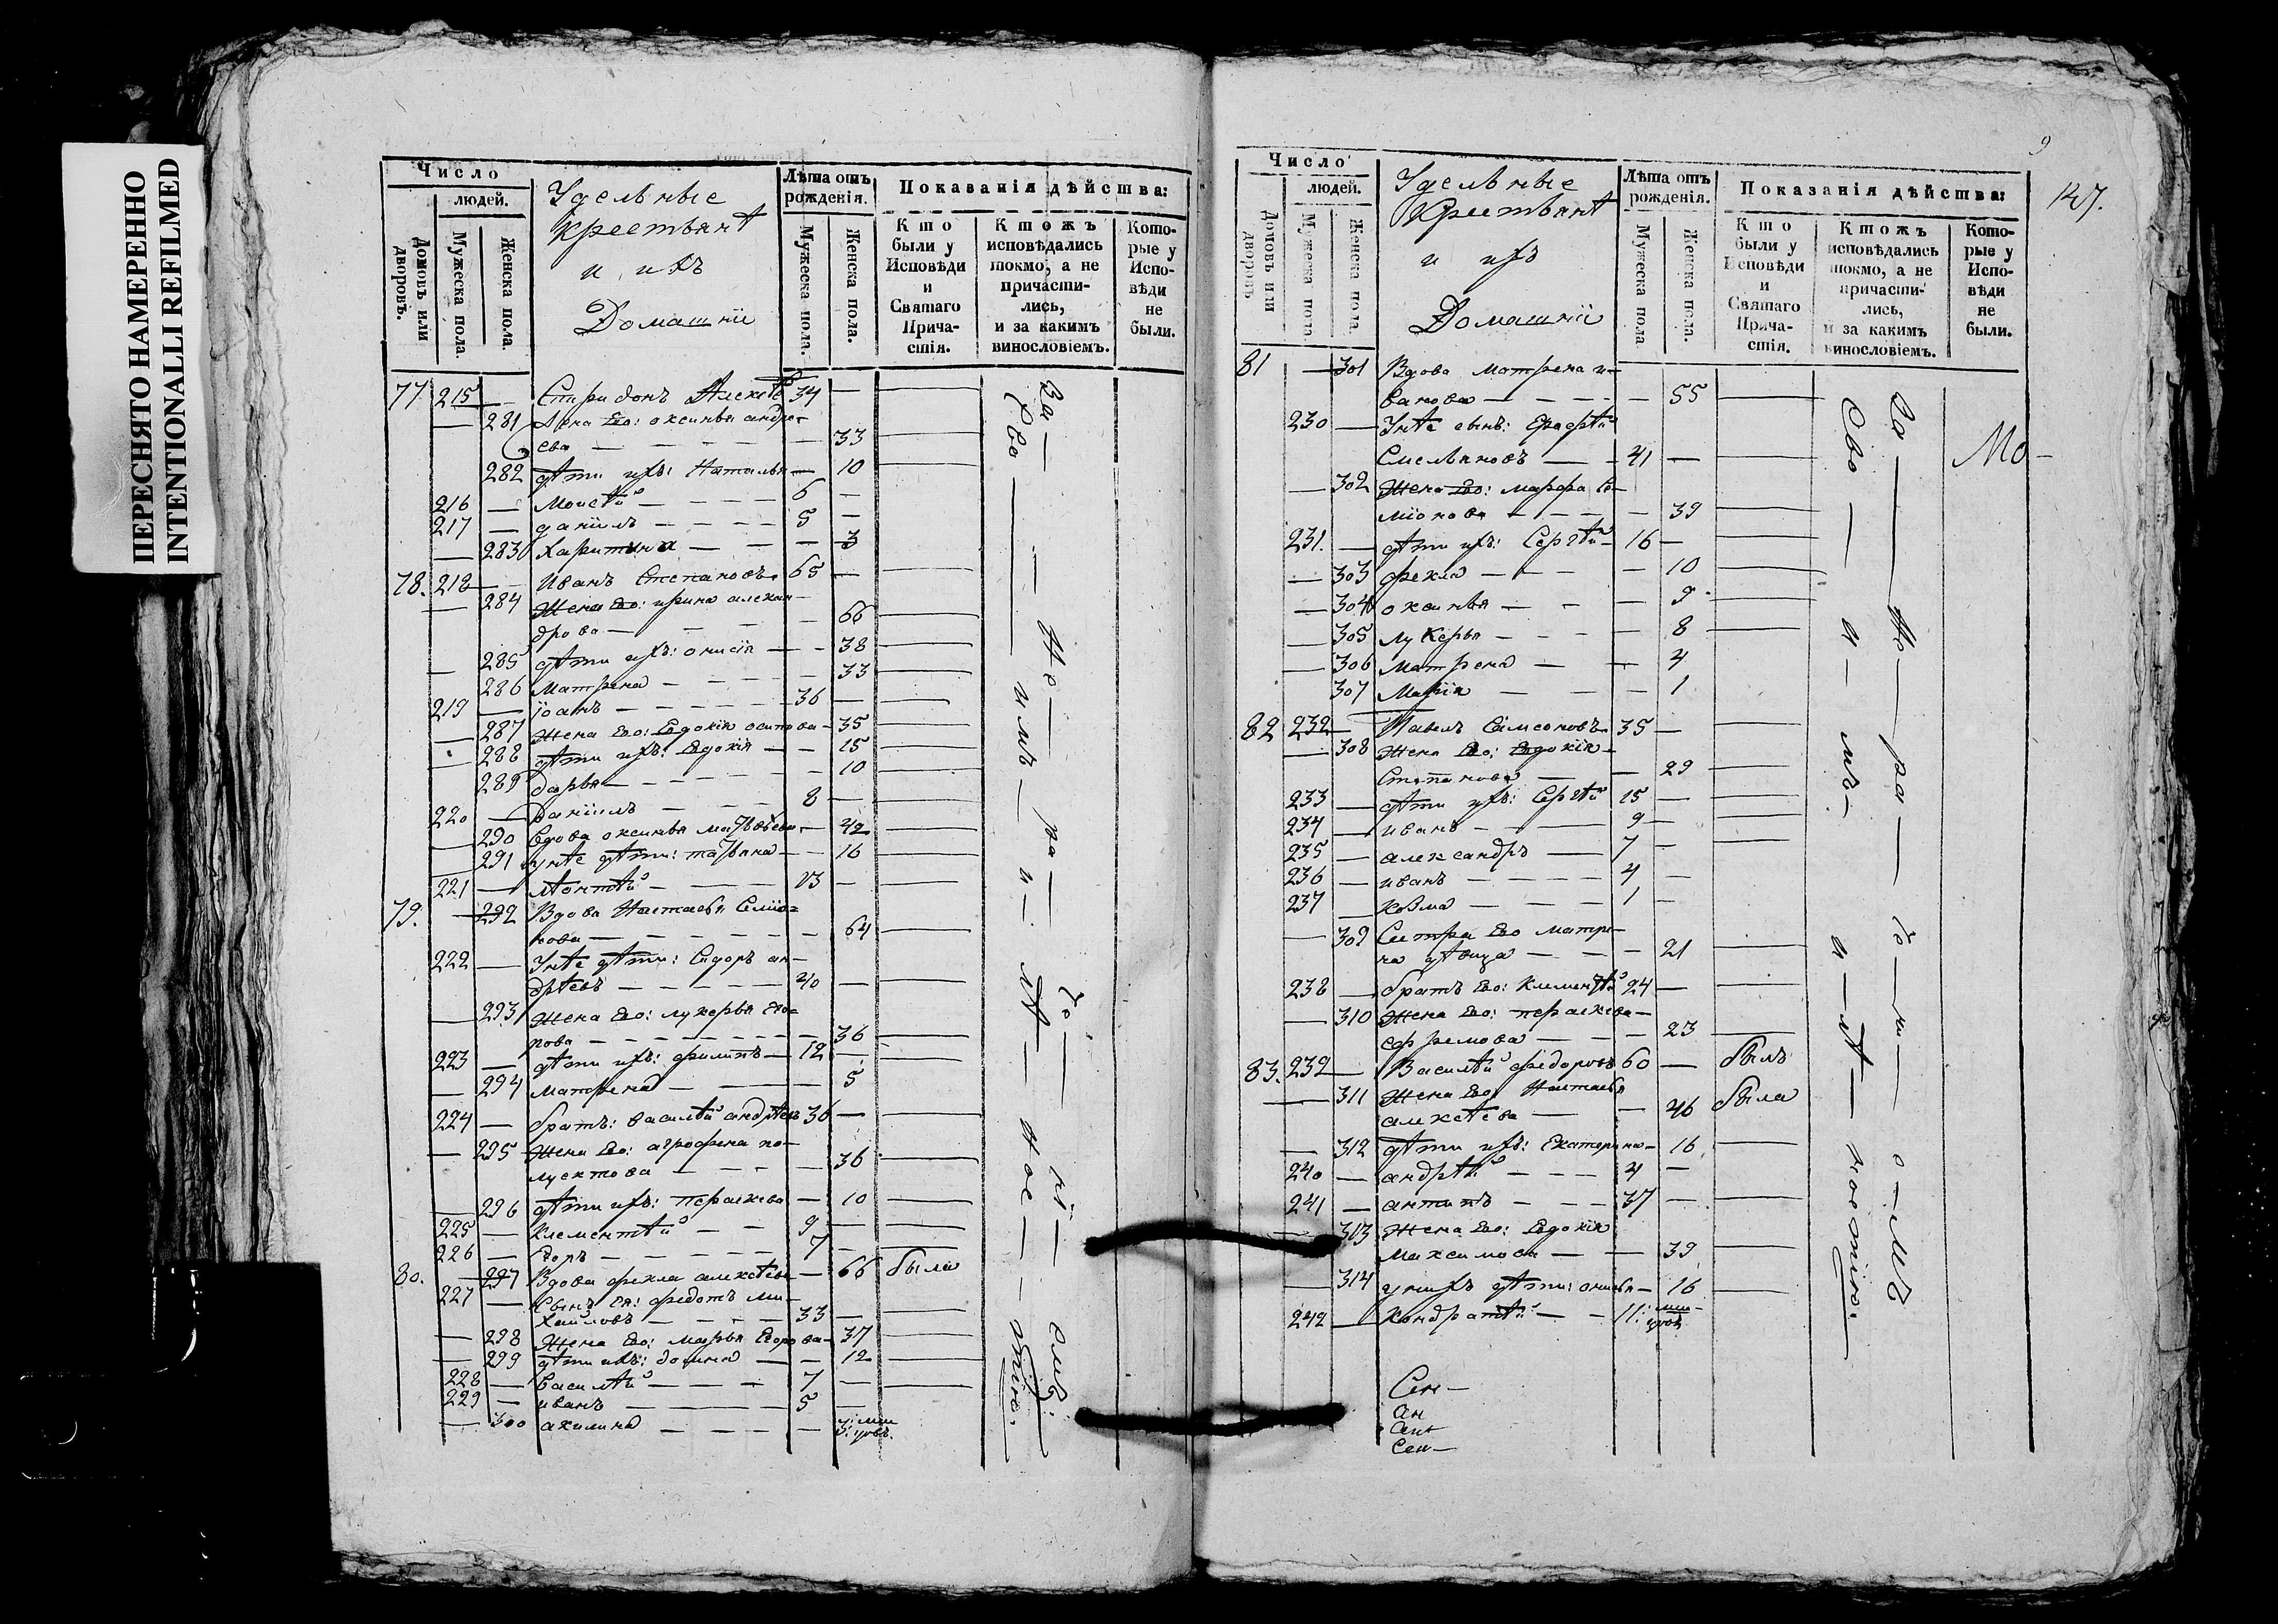 ПЕРЕСНЯТО НАМЕРЕННО
INTENTIONALLI REFILMED
Число
людей.
Домовъ или дворовъ.
Мужеска пола.
Женска пола.
Удельные
крестьянѣ
и ихъ
Домашнїи
Лѣта отъ рожденія.
Мужеска пола.
Женска пола.
Показанія дѣйства:
Кто были у Исповѣди и Святаго Причастія.
Ктожъ исповѣдались токмо, а не причастились, и за какимъ винословіемъ.
Которые у Исповѣди не были.
77. 215 — Спиридонъ Алексѣе 34 —
— 281 Жена Ево: оксинья андре-
ева — 33
282 дѣти ихъ: Наталья — 10
216 — Моисѣй — 6 —
217 — данїилъ — 5 —
— 283 Харитина — 3
78. 218 — Иванъ Степановъ 65 —
— 284 Жена Ево: ирина алексан-
дрова — 66
— 285 дѣти ихъ: онисїя — 38
286 Матрена — 33
219 — їоанъ — 36 —
— 287 Жена Ево: Евдокїя осипова — 35
— 288 дѣти ихъ: Евдокїя — 15
289 дарья — 10
220 — Данїилъ — 8 —
— 290 вдова оксинья матвѣева — 42
— 291 унѣе дѣти: татьяна — 16
221 — леонтѣй — 13 —
79. — 292 Вдова Настасья Семїо-
нова — 64
222 — Унѣе дѣти: Сидоръ ан-
дрѣевъ — 40 —
— 293 Жена Ево: лукерья его-
рова — 36
223 — дѣти ихъ: филипъ — 12 —
— 294 матрена — 5
224 — братъ: василѣй андрѣевъ 38 —
— 295 Жена Ево: агрофена по-
луектова — 36
— 296 дѣти ихъ: пераскева — 10
225 — Клементѣй — 9 —
226 — Егоръ — 7 —
80. — 297 Вдова фекла алексѣева — 66 была
227 — Сынъ ея: федотъ ми-
хайловъ — 33 —
— 298 Жена Ево: марья Егорова — 37
— 299 дѣти ихъ: домна — 12
228 — василѣй — 7 —
229 — иванъ — 5 —
— 300 акилина — 3: мѣсяцовъ.
9
147.
Число
людей.
Домовъ или дворовъ
Мужеска пола
Женска пола.
Удельные
Крестьянѣ
и ихъ
Домашнїи
Лѣта отъ рожденія.
Мужеска пола
Женска пола.
Показанія дѣйства:
Кто были у Исповѣди и Святаго Причастія.
Ктожъ исповѣдались токмо, а не причастились, и за какимъ винословіемъ.
Которые у Исповѣди не были.
81 — 301 Вдова матрена и-
ванова — 55
230 — Унѣе сынъ:
Емельяновъ — 41 —
— 302 Жена Ево: марфа Се-
мїонова — 39
231. — дѣти ихъ: Сергѣй — 16 —
— 303 фекла — 10
— 304 оксинья — 9
— 305 лукерья — 8
— 306 матрена — 4
307 Марїя — 1
82 232 — Павелъ Самсоновъ 35 —
— 308 Жена Ево: Евдокїя
Степанова — 29
233 — дѣти ихъ: Сергѣй 15 —
234 — иванъ — 9 —
235 — александръ — 7 —
236 — иванъ — 4 —
237 — козма — 1 —
— 309 Сестра Ево матре-
на дѣвица — 21
238 — братъ Ево: Клементѣй 24 —
— 310 Жена Ево: пераскева
ефремова — 23
83. 239 — Василѣй федоровъ 60 — былъ
— 311 Жена Ево: Настасья
алексѣева — 46 была
— 312 дѣти ихъ: Екатерина — 16
240 — андрѣй — 4 —
241 — антипъ — 37 —
— 313 Жена Ево: Евдокїя
Максимова — 39
— 314 унихъ дѣти: онисья — 16
242 — Кондратѣй — 11: мѣсяцовъ
Мо-
Сем-
Ан
Сем-